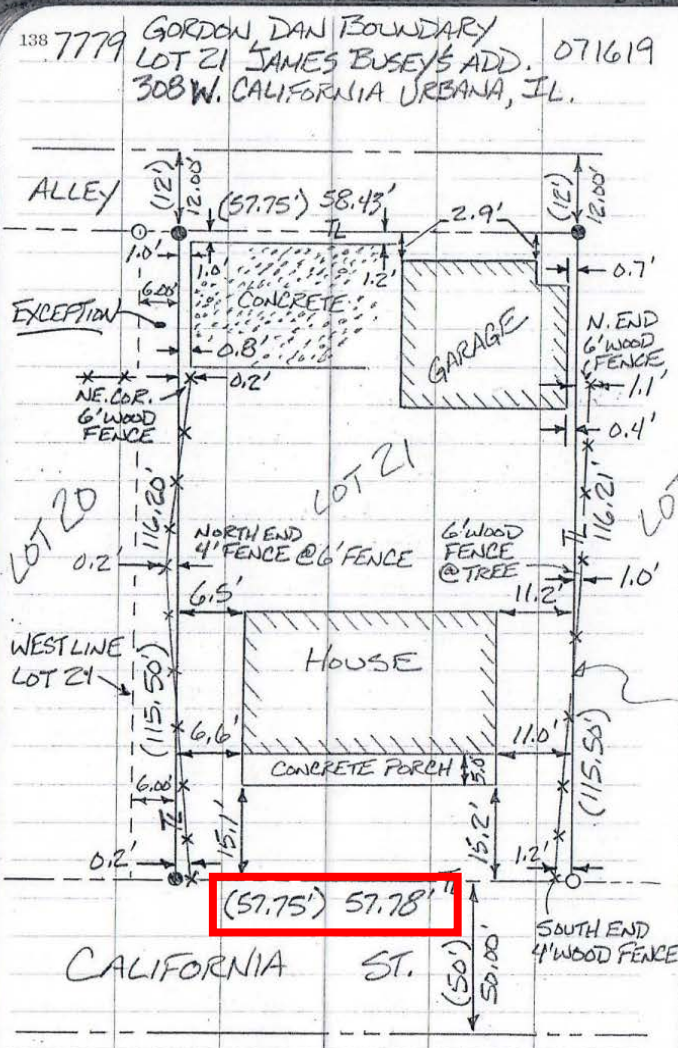 138 7779 GORDON, DAN BOUNDARY
LOT 21 JAMES BUSEY'S ADD. 071619
308 W. CALIFORNIA URBANA, IL.
ALLEY
(12')
12.00'
(57.75') 58.43'
TL
2.9'
(12')
12.00'
1.0'
1.0'
1.2'
0.7'
6.00'
EXCEPTION
CONCRETE
GARAGE
N. END
6' WOOD
FENCE
0.8'
0.2'
1.1'
NE. COR.
6' WOOD
FENCE
0.4'
LOT 20
116.20'
LOT 21
TL 116.21'
LO
NORTH END
4' FENCE @ 6' FENCE
6' WOOD
FENCE
@ TREE
0.2'
1.0'
6.5'
11.2'
WEST LINE
LOT 21
HOUSE
(115.50')
6.6'
11.0'
(115.50')
CONCRETE PORCH
5.0'
6.00'
TL
15.1'
15.2'
0.2'
1.2'
(57.75') 57.78'
TL
SOUTH END
4' WOOD FENCE
CALIFORNIA ST.
(50')
50.00'